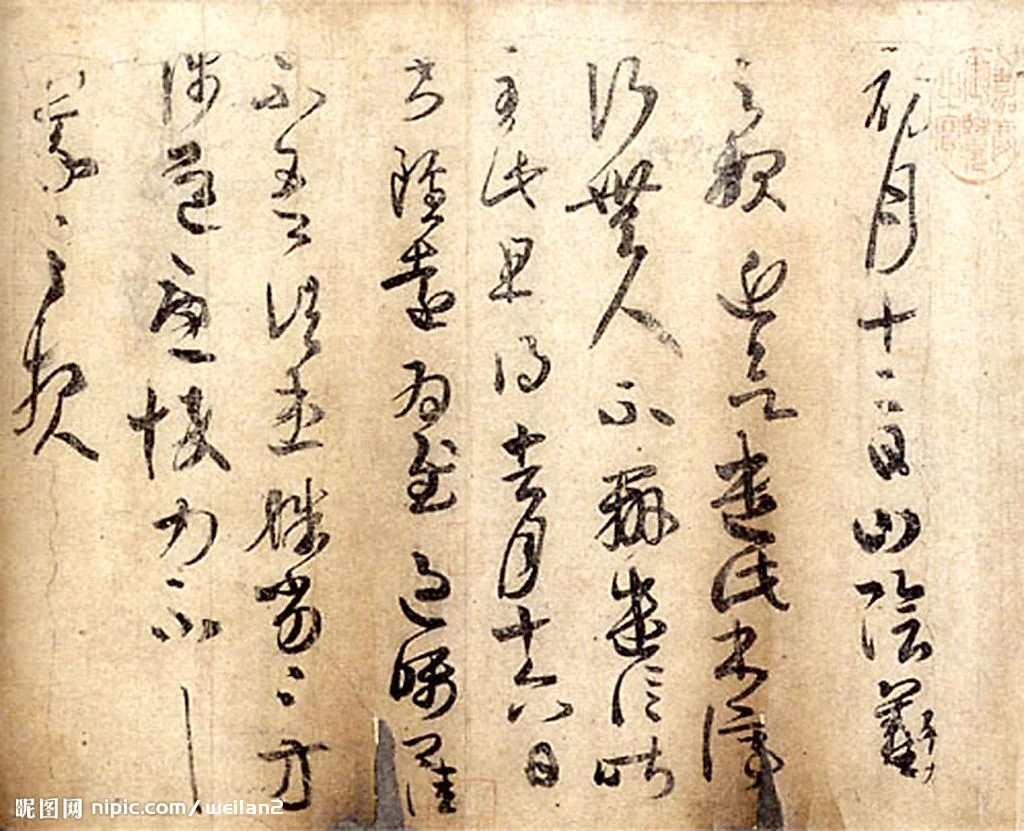 初月十二日山陰羲
之報近欲遣此書停
行無人不辦遣信昨
至此且得去月十六日
書雖遠為慰過囑卿佳
不吾諸患殊劣〻方
涉道憂悴力不具
羲之報
昵图网 nipic.com/weilan2